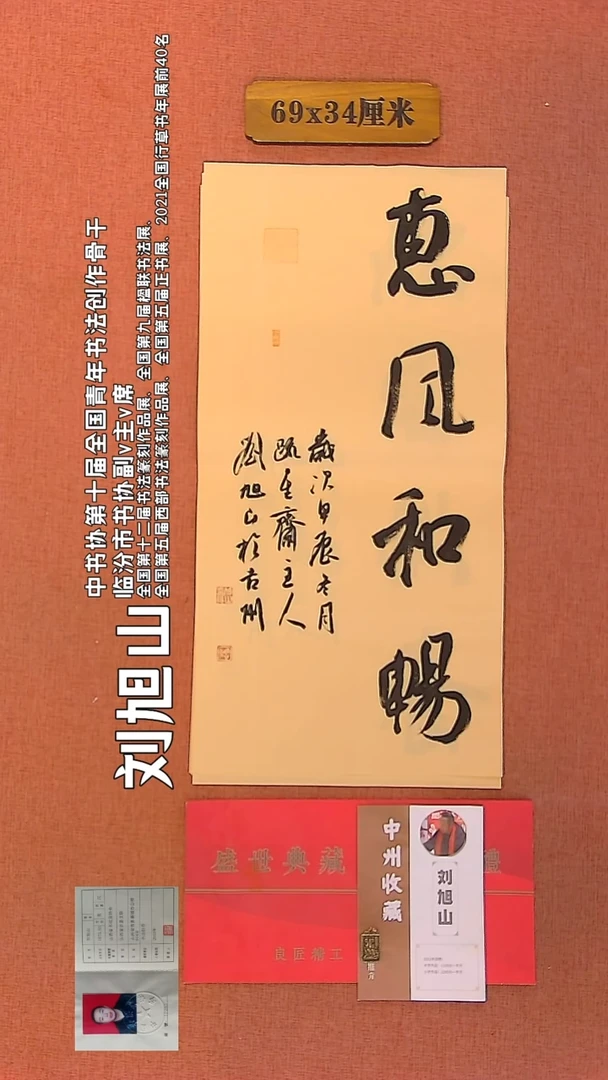 69x34厘米
惠风和暢
歲次甲辰冬月
主人
劉旭山於古州
刘旭山
中书协第十届全国青年书法创作骨干
临汾市书协副v主v席
全国第十二届书法篆刻作品展、全国第九届楹联书法展、
全国第五届西部书法篆刻作品展、全国第五届正书展、2021全国行草书年展前40名
盛世典藏
禮
良匠精工
中州收藏
刘旭山